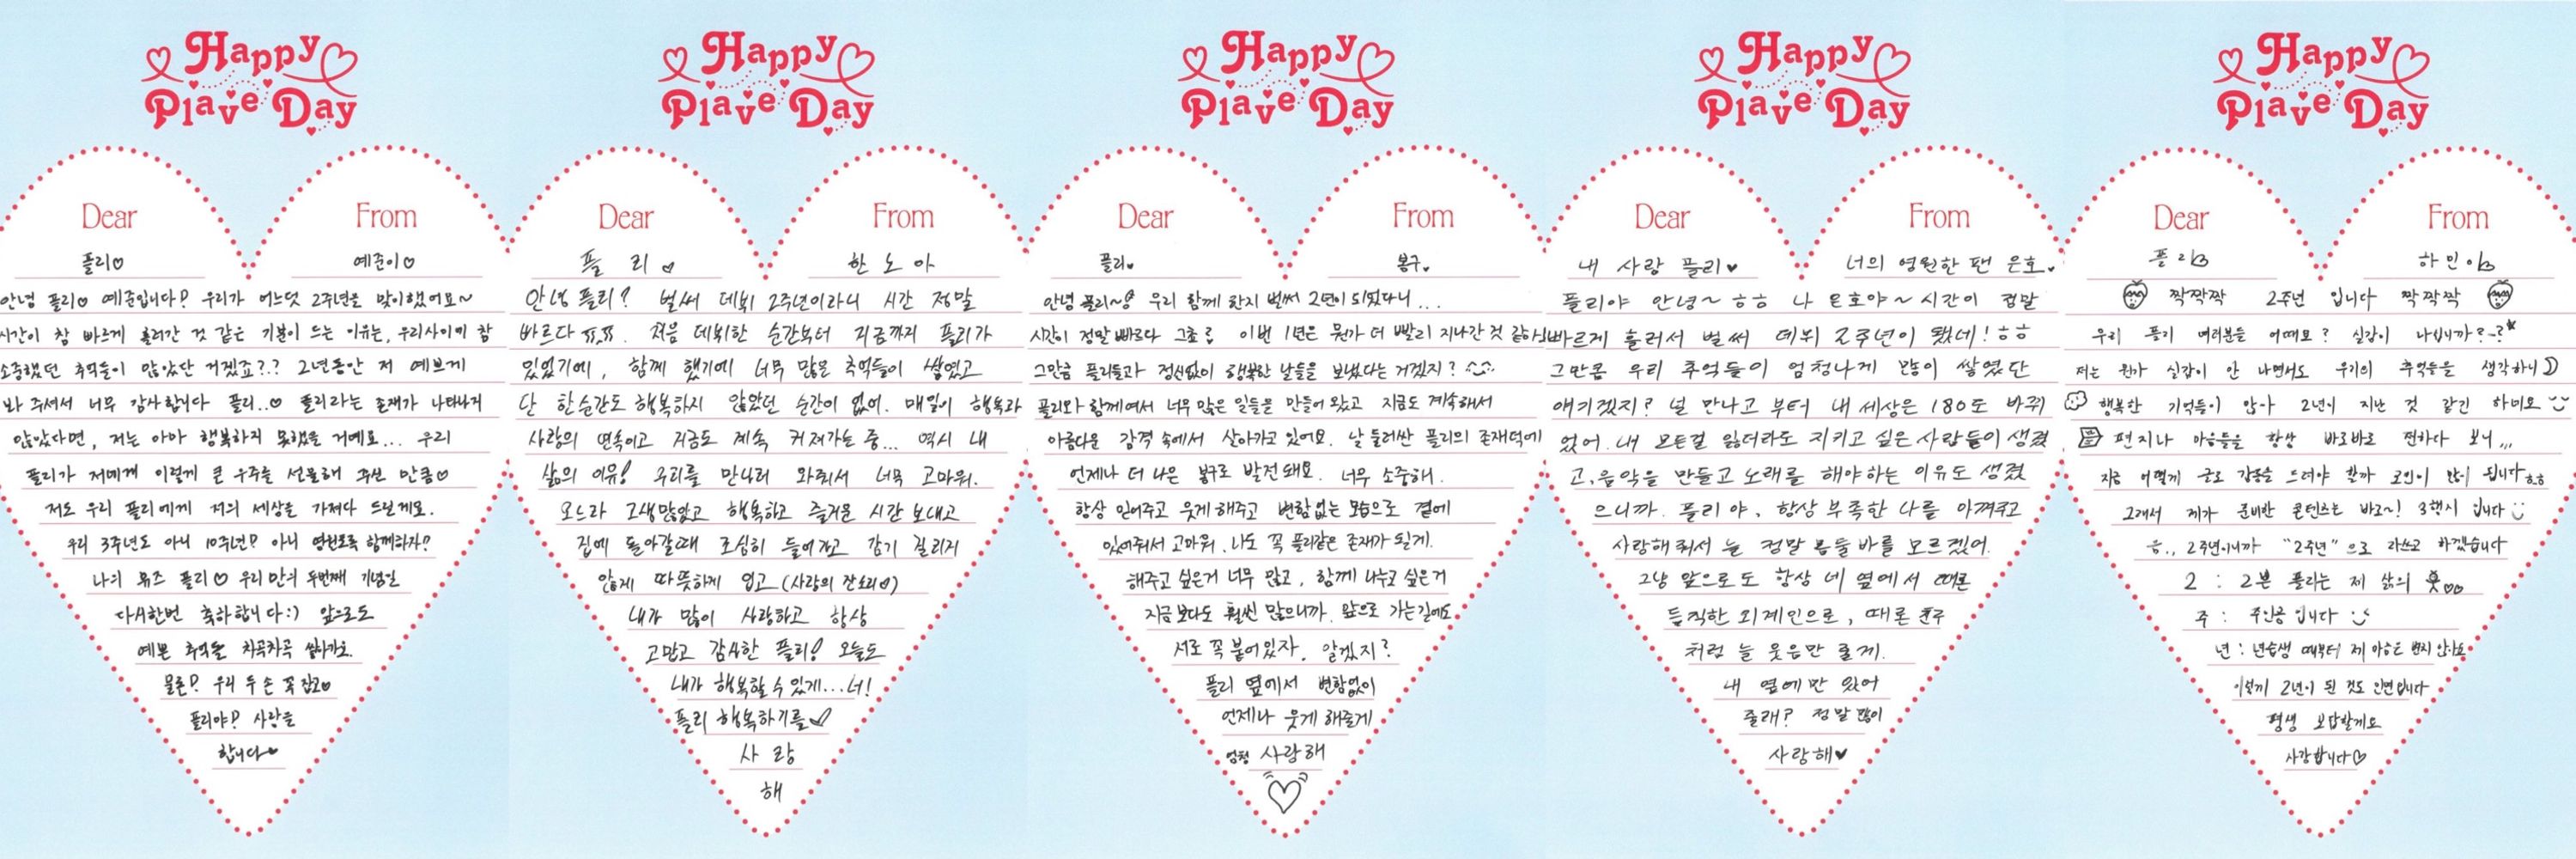 Happy
Plave Day
Dear
From
플리♡
예준이♡
안녕 플리♡ 예준입니다! 우리가 어느덧 2주년을 맞이했어요~
시간이 참 빠르게 흘러간 것 같은 기분이 드는 이유는, 우리사이에 참
소중했던 추억들이 많았단 거겠죠?? 2년동안 저 예쁘게
봐 주셔서 너무 감사합니다 플리..♡ 플리라는 존재가 나타나지
않았다면, 저는 아마 행복하지 못했을 거예요... 우리
플리가 저에게 이렇게 큰 우주를 선물해 주신 만큼♡
저도 우리 플리에게 저의 세상을 가져다 드릴게요.
우리 3주년도 아니 10주년! 아니 영원토록 함께하자!
나의 뮤즈 플리♡ 우리만의 두번째 기념일
다시한번 축하합니다:) 앞으로도
예쁜 추억들 차곡차곡 쌓아가요.
물론! 우리 두 손 꼭 잡고♡
플리야! 사랑을
합니다♥
Happy
Plave Day
Dear
From
플리♡
한노아
안녕 플리? 벌써 데뷔 2주년이라니 시간 정말
빠르다 ㅠㅠ. 처음 데뷔한 순간부터 지금까지 플리가
있었기에, 함께 했기에 너무 많은 추억들이 쌓였고
단 한순간도 행복하지 않았던 순간이 없어. 매일이 행복과
사랑의 연속이고 지금도 계속 커져가는 중... 역시 내
삶의 이유! 우리를 만나러 와줘서 너무 고마워.
오느라 고생많았고 행복하고 즐거운 시간 보내고
집에 돌아갈때 조심히 들어가고 감기 걸리지
않게 따뜻하게 입고 (사랑의 잔소리♡)
내가 많이 사랑하고 항상
고맙고 감사한 플리! 오늘도
내가 행복할 수 있게...너!
플리 행복하기를♡
사랑
해
Happy
Plave Day
Dear
From
플리♥
봉구♥
안녕 플리~! 우리 함께 한지 벌써 2년이 되었다니...
시간이 정말 빠르다 그죠? 이번 1년은 뭔가 더 빨리 지나간 것 같아
그만큼 플리들과 정신없이 행복한 날들을 보냈다는 거겠지?
플리와 함께여서 너무 많은 일들을 만들어 왔고 지금도 계속해서
아름다운 감격 속에서 살아가고 있어요. 날 둘러싼 플리의 존재덕에
언제나 더 나은 봉구로 발전돼요. 너무 소중해.
항상 믿어주고 웃게 해주고 변함없는 모습으로 곁에
있어줘서 고마워. 나도 꼭 플리같은 존재가 될게.
해주고 싶은거 너무 많고, 함께 나누고 싶은거
지금보다도 훨씬 많으니까. 앞으로 가는길에도
서로 꼭 붙어있자. 알겠지?
플리 옆에서 변함없이
언제나 웃게 해줄게
엄청 사랑해
Happy
Plave Day
Dear
From
내 사랑 플리♥
너의 영원한 팬 은호♥
플리야 안녕~ ㅎㅎ 나 은호야~ 시간이 정말
빠르게 흘러서 벌써 데뷔 2주년이 됐네! ㅎㅎ
그만큼 우리 추억들이 엄청나게 많이 쌓였단
얘기겠지? 널 만나고 부터 내 세상은 180도 바뀌
었어. 내 모든걸 잃더라도 지키고 싶은 사람들이 생겼
고, 음악을 만들고 노래를 해야하는 이유도 생겼
으니까. 플리야, 항상 부족한 나를 아껴주고
사랑해줘서 늘 정말 몸둘바를 모르겠어.
그냥 앞으로도 항상 네 옆에서 때론
듬직한 외계인으로, 때론 친구
처럼 늘 웃음만 줄게.
내 옆에만 있어
줄래? 정말 많이
사랑해♥
Happy
Plave Day
Dear
From
플리♡
하민이♡
짝짝짝 2주년 입니다 짝짝짝
우리 플리 여러분들 어때요? 실감이 나십니까?
저는 뭔가 실감이 안 나면서도 우리의 추억들을 생각하니
행복한 기억들이 많아 2년이 지난 것 같긴 하미요
편지나 마음들을 항상 바로바로 전하다 보니,,,
지금 어떻게 글로 감동을 드려야 할까 고민이 많이 됩니다ㅎㅎ
그래서 제가 준비한 콘텐츠는 바로~! 3행시 입니다
음.. 2주년이니까 "2주년"으로 하겠습니다
2 : 2분 플리는 제 삶의
주 : 주인공 입니다
년 : 년습생 때부터 제 마음은 변치 않아요
이렇게 2년이 된 것도 인연입니다
평생 보답할게요
사랑합니다♡